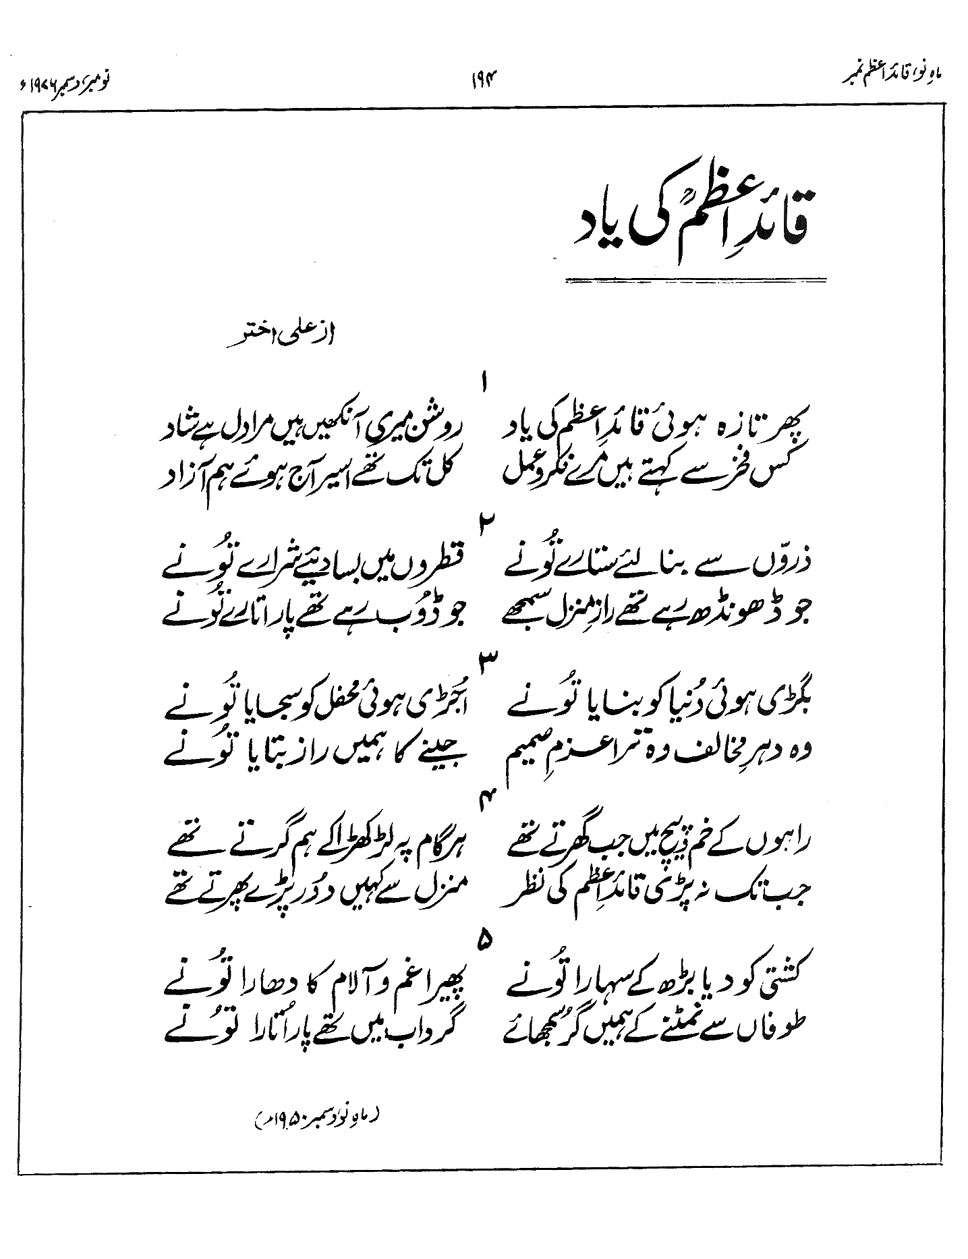 ماہِ نو، قائدِ اعظم نمبر ۱۹۴ نومبر، دسمبر ۱۹۷۶ء
قائدِ اعظمؒ کی یاد
از علی اختر
۱
پھر تازہ ہوئی قائدِ اعظم کی یاد روشن میری آنکھیں ہیں مرا دل ہے شاد
کس فخر سے کہتے ہیں مرے فکر و عمل کل تک تھے اسیر آج ہوئے ہم آزاد
۲
ذرّوں سے بنا لئے ستارے تُو نے قطروں میں بسا دیئے شرارے تُو نے
جو ڈھونڈھ رہے تھے رازِ منزل سمجھے جو ڈوب رہے تھے پار اتارے تُو نے
۳
بگڑی ہوئی دُنیا کو بنایا تُو نے اُجڑی ہوئی محفل کو سجایا تُو نے
وہ دہرِ مخالف وہ ترا عزمِ صمیم جینے کا ہمیں راز بتایا تُو نے
۴
راہوں کے خم و پیچ میں جب گھرتے تھے ہر گام پہ لڑکھڑا کے ہم گرتے تھے
جب تک نہ پڑی قائدِ اعظم کی نظر منزل سے کہیں دُور پڑے پھرتے تھے
۵
کشتی کو دیا بڑھ کے سہارا تُو نے پھیرا غم و آلام کا دھارا تُو نے
طوفاں سے نمٹنے کے ہمیں گُر سمجھائے گرداب میں تھے پار اُتارا تُو نے
(ماہِ نو، دسمبر ۱۹۵۰ء)